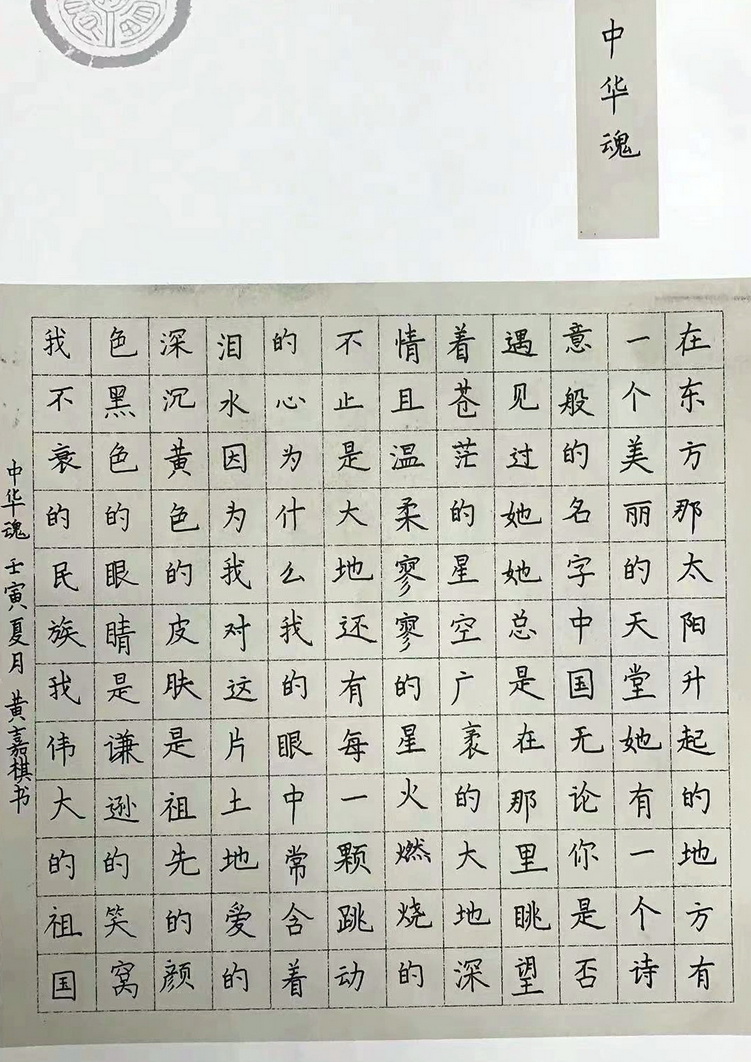 中华魂
在东方那太阳升起的地方有
一个美丽的天堂她有一个诗
意般的名字中国无论你是否
遇见过她她总是在那里眺望
着苍茫的星空广袤的大地深
情且温柔寥寥的星火燃烧的
不止是大地还有每一颗跳动
的心为什么我的眼中常含着
泪水因为我对这片土地爱的
深沉黄色的皮肤是祖先的颜
色黑色的眼睛是谦逊的笑窝
我不衰的民族我伟大的祖国
中华魂 壬寅夏月 黄嘉棋书